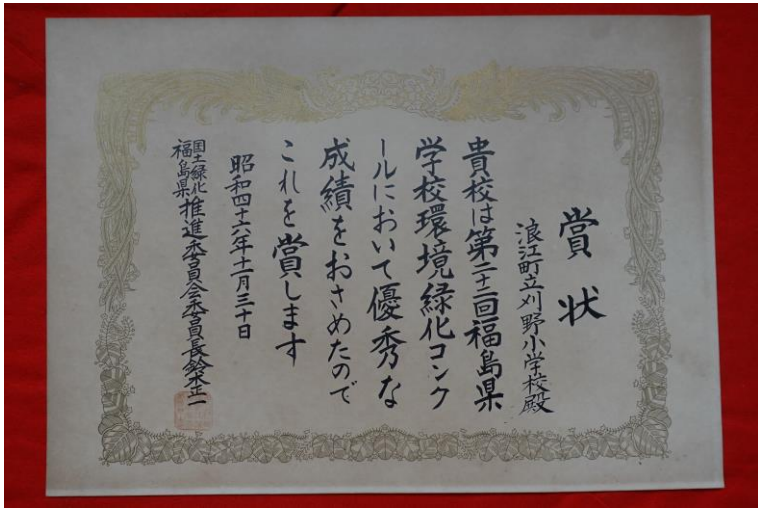 賞状
浪江町立苅野小学校殿
貴校は第二十二回福島県
学校環境緑化コンク
ールにおいて優秀な
成績をおさめたので
これを賞します
昭和四十六年十一月三十日
国土緑化
福島県推進委員会委員長鈴木正一